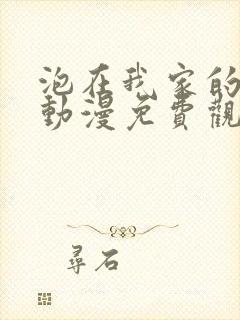 泡在我家的
動漫免費觀
尋石